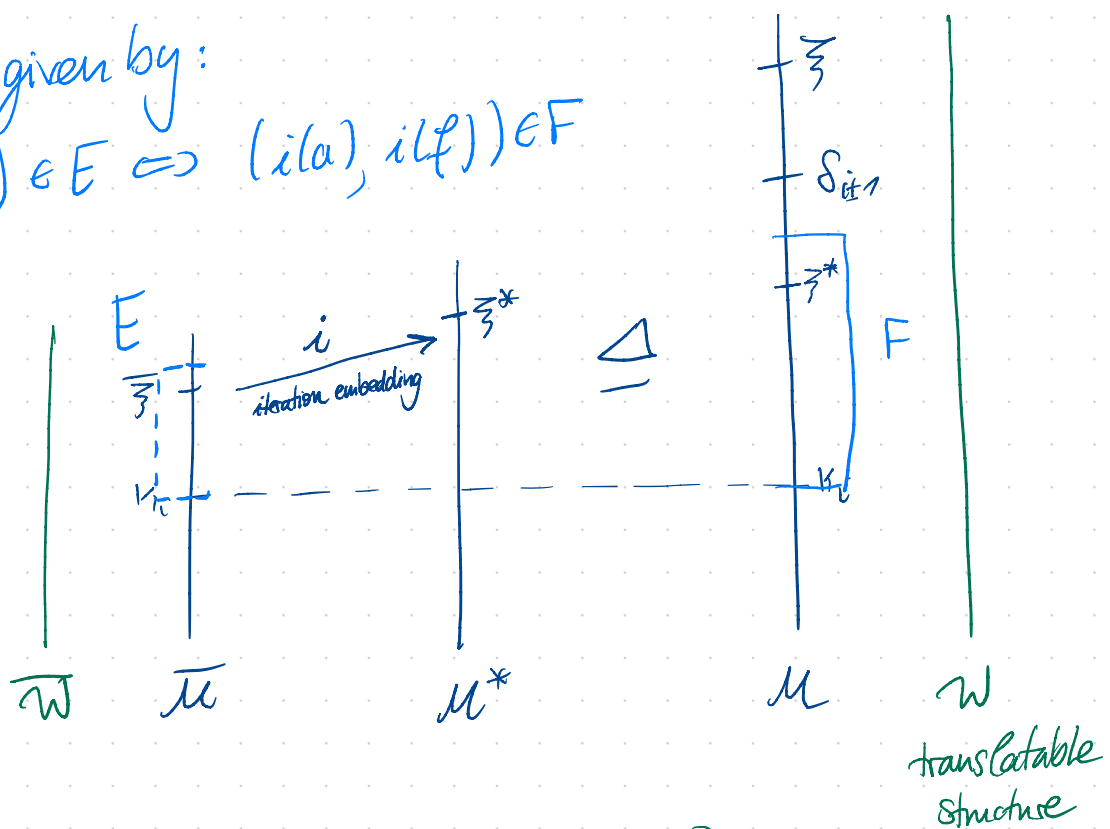 given by:
) ∈ E ⇔ (i(a), i(f)) ∈ F
ξ
δ_{i+1}
ξ*
F
κ_i
E
i
iteration embedding
ξ̄
κ_i
ξ*
⊴
W̄
M̄
M*
M
W
translatable
structure